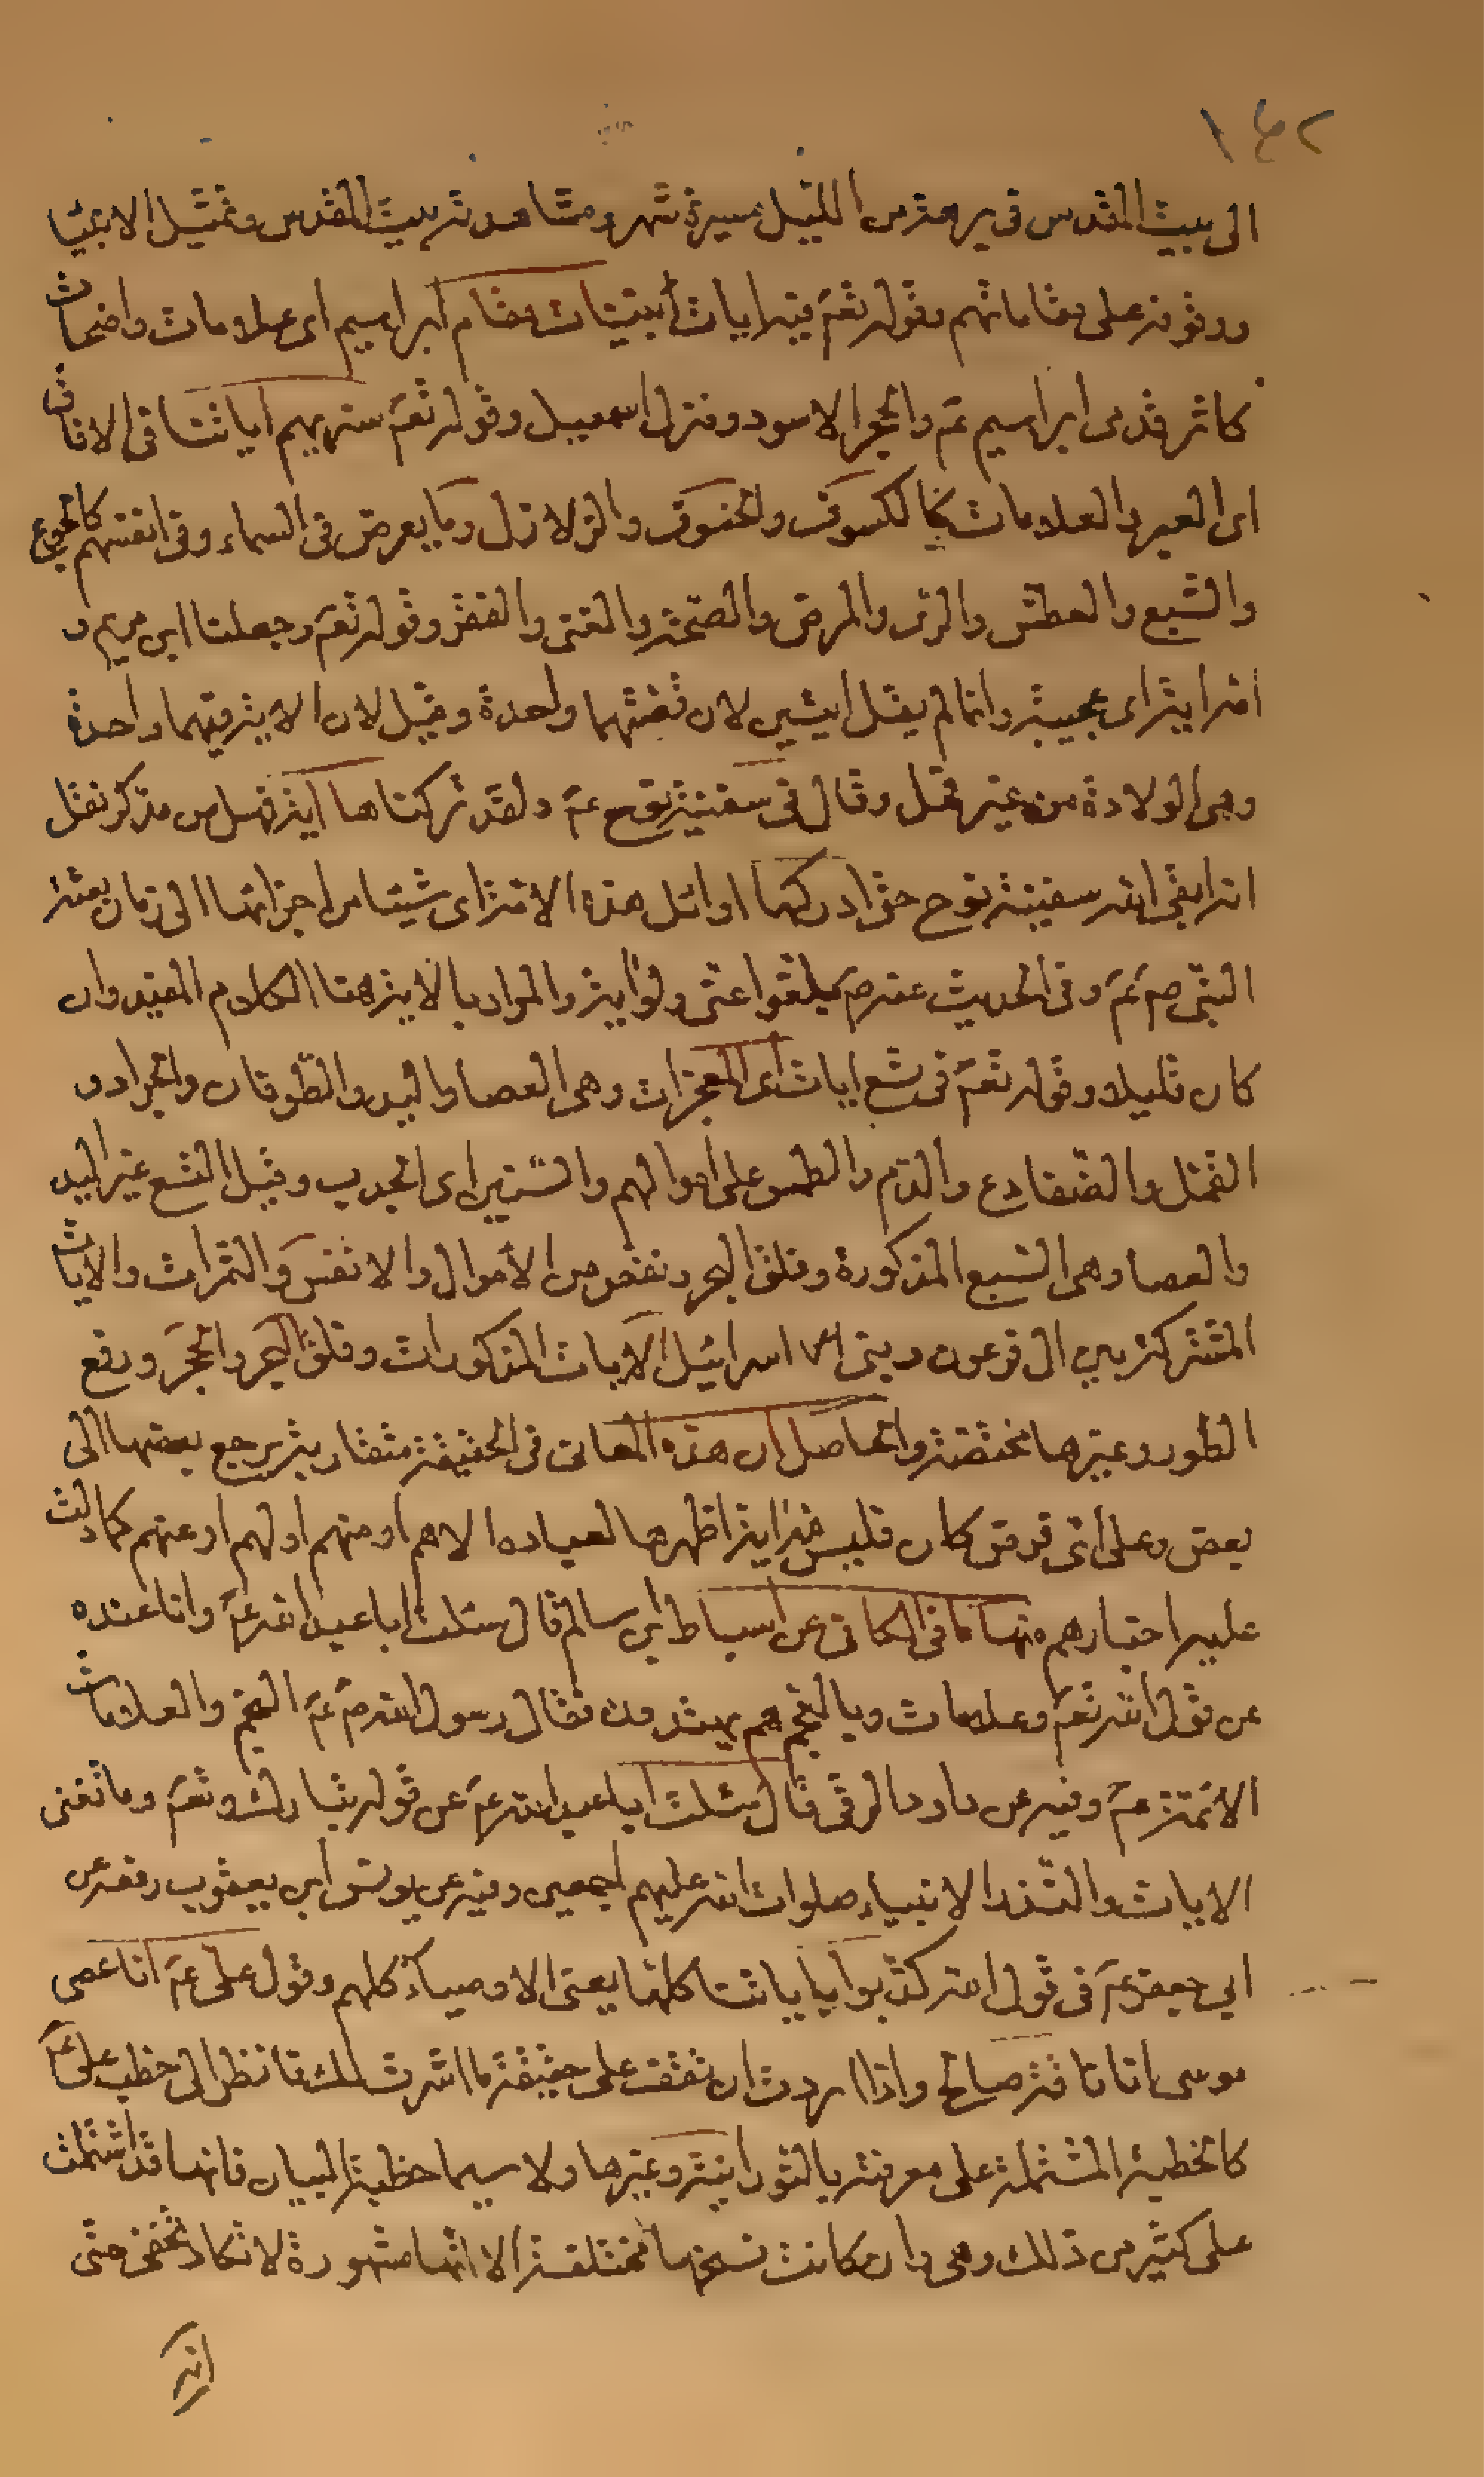 ١٤٢
الى بيت المقدس فى برهة من الليل مسيرة شهر ومشاهدته بيت المقدس وتمثيل الانبيا
ووقوفه على مقاماتهم وقوله تعم فيه ايات بينات مقام ابراهيم اى علامات واضحات
كاثر قدمى ابراهيم عم والحجر الاسود ومنزل اسمعيل وقوله تعم سنريهم اياتنا فى الافاق
اى العبر والعلامات كالكسوف والخسوف والزلازل وما يعرض فى السماء وفى انفسهم كالجوع
والشبع والعطش والرى والمرض والصحة والغنى والفقر وقوله تعم وجعلنا ابن مريم و
امه اية اى عجيبة وانما لم يقل ايتين لان قصتهما واحدة وقيل لان الاية فيهما واحدة
وهى الولادة من غير فحل وقال فى سفينة نوح عم ولقد تركناها اية فهل من مدكر نقل
انه ابقى الله سفينة نوح حتى ادركها اوائل هذه الامة اى شيئا من اجزائها الى زمان بعثة
النبى صم عم وفى الحديث عنه صم بلغوا عنى ولو اية والمراد بالاية هنا الكلام المفيد وان
كان قليلا وقوله تعم فى تسع ايات اى المعجزات وهى العصا واليد والطوفان والجراد و
القمل والضفادع والدم والطمس على اموالهم والسنين اى الجدب وقيل التسع غير اليد
والعصا وهى السبع المذكورة وفلق البحر ونقص من الأموال والانفس والثمرات والايات
المشتركة بين ال فرعون وبنى اسرائيل الايات المذكورات وفلق البحر والحجر ورفع
الطور وغيرها مختصة والحاصل ان هذه المعانى فى الحقيقة متقاربة يرجع بعضها الى
بعض وعلى اى فرض كان فليس لله اية اظهرها لعباده الا هم او منهم او لهم او عنهم كما دلت
عليه اخبارهم منها ما فى الكافى عن اسباط ابن سالم قال سئلت ابا عبد الله عم وانا عنده
عن قول الله تعم وعلامات وبالنجم هم يهتدون فقال رسول الله صم عم النجم والعلامات
الائمة عم وفيه عن داود الرقى قال سئلت ابا عبد الله عم عن قوله تبارك وتعم وما تغنى
الايات والنذر الانبياء صلوات الله عليهم اجمعين وفيه عن يونس ابن يعقوب رفعه عن
ابى جعفر عم فى قول الله كذبوا باياتنا كلها يعنى الاوصياء كلهم وقول على عم انا عصى
موسى انا ناقة صالح واذا اردت ان تقف على حقيقة ما اشرت لك فانظر الى خطب على عم
كالخطبة المشتملة على معرفته بالنورانية وغيرها ولا سيما خطبة البيان فانها قد اشتملت
على كثير من ذلك وهى وان كانت نسخها مختلفة الا انها مشهورة لا تكاد تخفى حتى
انه